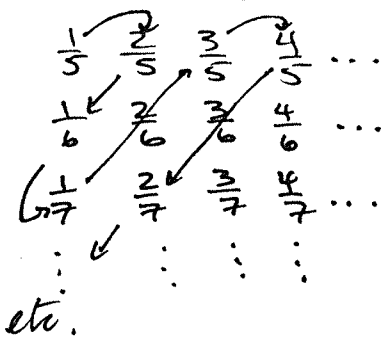 1/5 2/5 3/5 4/5 ...
1/6 2/6 3/6 4/6 ...
1/7 2/7 3/7 4/7 ...
⋮ ⋮ ⋮ ⋮
etc.